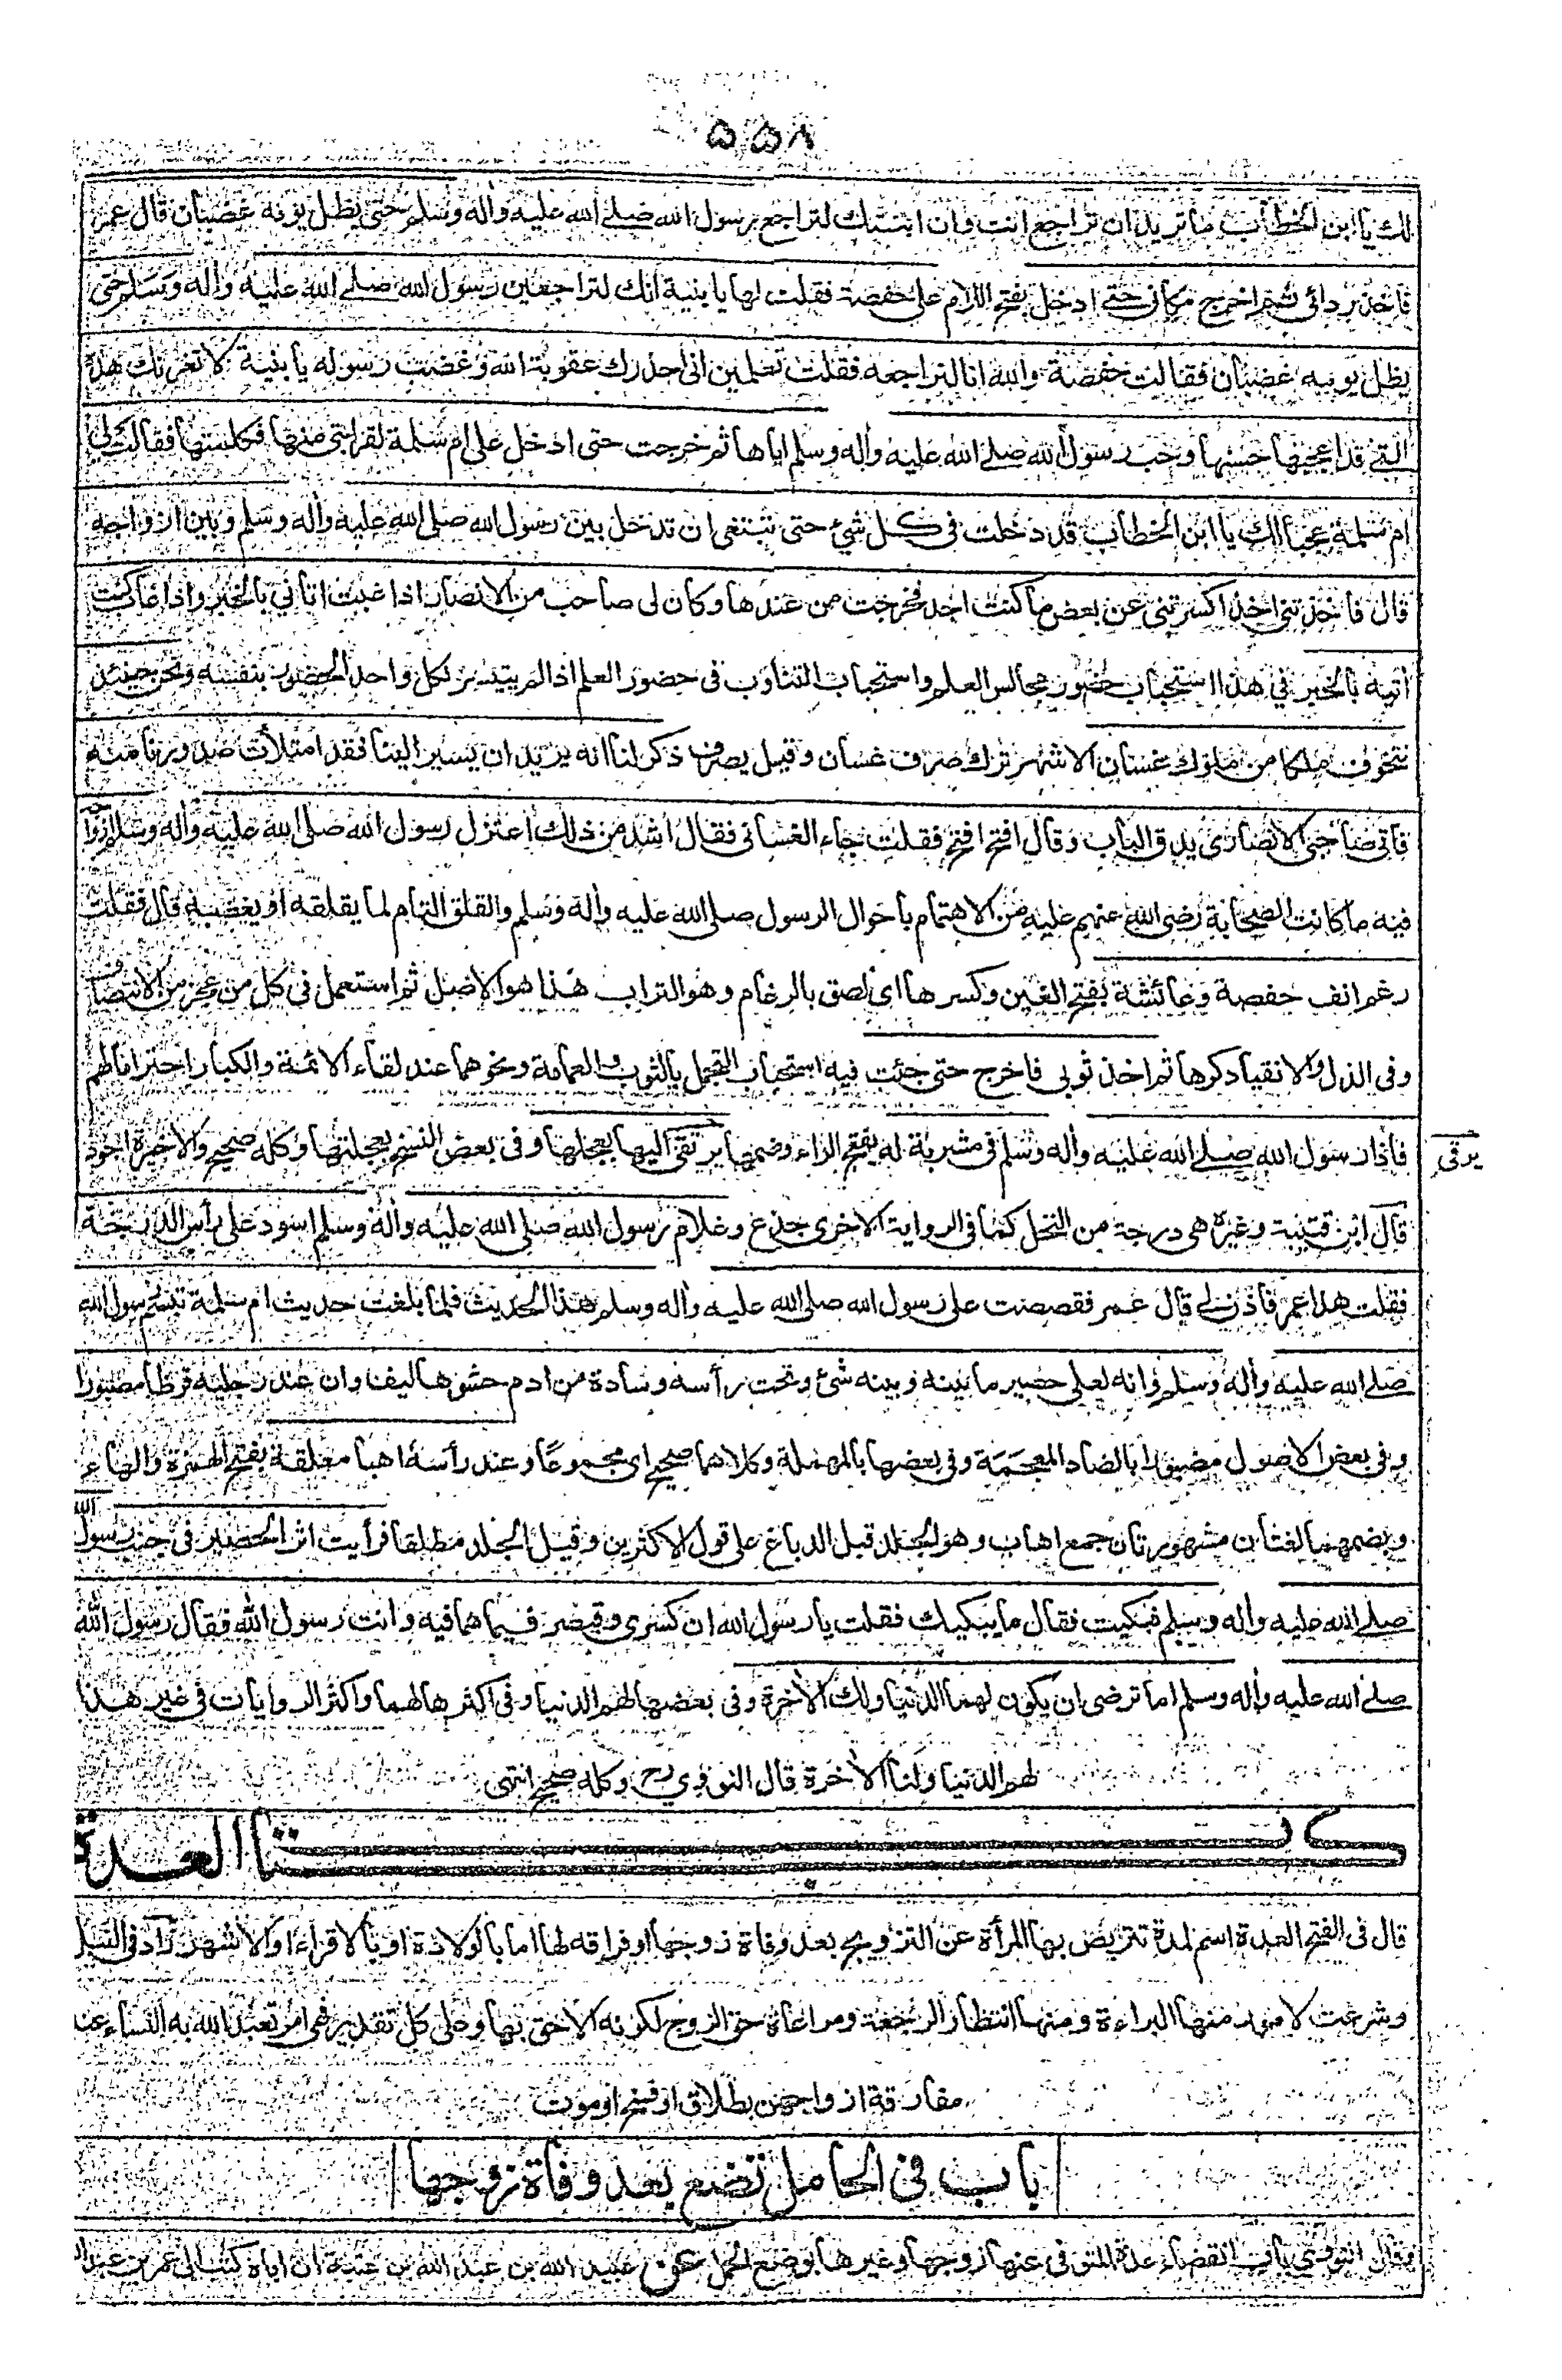 ۵۵۸
لك يا ابن الخطاب ما تريد ان تراجع انت وان ابنتك لتراجع رسول الله صلے الله عليه واله وسلم حتى يظل يومه غضبان قال عمر
فاخذ ردائى ثم اخرج مكانى حتى ادخل بفتح اللام على حفصة فقلت لها يا بنية انك لتراجعين رسول الله صلے الله عليه واله وسلم حتى
يظل يومه غضبان فقالت حفصة والله انا لنراجعه فقلت تعلمين انى احذرك عقوبة الله وغضب رسوله يا بنية لا تغرنك هذه
التى قد اعجبها حسنها وحب رسول الله صلے الله عليه واله وسلم اياها ثم خرجت حتى ادخل على ام سلمة لقرابتى منها فكلمتها فقالت لى
ام سلمة عجبا لك يا ابن الخطاب قد دخلت فى كل شئ حتى تبتغى ان تدخل بين رسول الله صلى الله عليه واله وسلم وبين ازواجه
قال فاخذتنى اخذا كسرتنى عن بعض ما كنت اجد فخرجت من عندها وكان لى صاحب من الانصار اذا غبت اتانى بالخبر واذا غاب كنت
اتيه بالخبر فى هذا استحباب حضور مجالس العلم واستحباب التناوب فى حضور العلم اذا لم يتيسر لكل واحد الحضور بنفسه ونحن حينئذ
نتخوف ملكا من ملوك غسان الاشهر ترك صرف غسان وقيل يصرف ذكر لنا انه يريد ان يسير الينا فقد امتلأت صدورنا منه
فاتى صاحبى الانصارى يدق الباب وقال افتح افتح فقلت جاء الغسانى فقال اشد من ذلك اعتزل رسول الله صلى الله عليه واله وسلم ازواجه
فيه ما كانت الصحابة رضى الله عنهم عليه من الاهتمام باحوال الرسول صلى الله عليه واله وسلم والقلق التام لما يقلقه او يغضبه قال فقلت
رغم انف حفصة وعائشة بفتح الغين وكسرها اى لصق بالرغام وهو التراب هذا هو الاصل ثم استعمل فى كل من عجز من الانتصاف
وفى الذل والانقياد كرها ثم اخذ ثوبى فاخرج حتى جئت فيه استحباب التجمل بالثوب والعمامة ونحوهما عند لقاء الائمة والكبار احتراما لهم
فاذا رسول الله صلے الله عليه واله وسلم فى مشربة له بفتح الراء وضمها يرتقى اليها بعجلها وفى بعض النسخ بعجلتها وكله صحيح والاخيرة اجود
يرقى
قال ابن قتيبة وغيره هى درجة من النخل كما فى الرواية الاخرى جذع وغلام رسول الله صلى الله عليه واله وسلم اسود على رأس الدرجة
فقلت هذا عمر فاذن لى قال عمر فقصصت على رسول الله صلى الله عليه واله وسلم هذا الحديث فلما بلغت حديث ام سلمة تبسم رسول الله
صلے الله عليه واله وسلم وانه لعلى حصير ما بينه وبينه شئ وتحت رأسه وسادة من ادم حشوها ليف وان عند رجليه قرظا مصبورا
وفى بعض الاصول مضبورا بالضاد المعجمة وفى بعضها بالمهملة وكلاهما صحيح اى مجموعا وعند رأسه اهبا معلقة بفتح الهمزة والهاء
وبضمهما لغتان مشهورتان جمع اهاب وهو الجلد قبل الدباغ على قول الاكثرين وقيل الجلد مطلقا فرأيت اثر الحصير فى جنب رسول الله
صلے الله عليه واله وسلم فبكيت فقال ما يبكيك فقلت يا رسول الله ان كسرى وقيصر فيما هما فيه وانت رسول الله فقال رسول الله
صلے الله عليه واله وسلم اما ترضى ان يكون لهما الدنيا ولك الاخرة وفى بعضها لهم الدنيا وفى اكثرها لهما واكثر الروايات فى غير هذا
لهم الدنيا ولنا الاخرة قال النووى رح وكله صحيح انتهى
كتاب العدة
قال فى الفتح العدة اسم لمدة تتربص بها المرأة عن التزويج بعد وفاة زوجها او فراقه لها اما بالولادة او بالاقراء او الاشهر زاد فى النيل
وشرعت لامور منها البراءة ومنها انتظار الرجعة ومراعاة حق الزوج لكونه الاحق بها وعلى كل تقدير فهى امر تعبد الله به النساء عند
مفارقة ازواجهن بطلاق او فسخ او موت
باب فى الحامل تضع بعد وفاة زوجها
وقال النووى باب انقضاء عدة المتوفى عنها زوجها وغيرها بوضع الحمل عن عبيد الله بن عبد الله بن عتبة ان اباه كتب الى عمر بن عبد الله